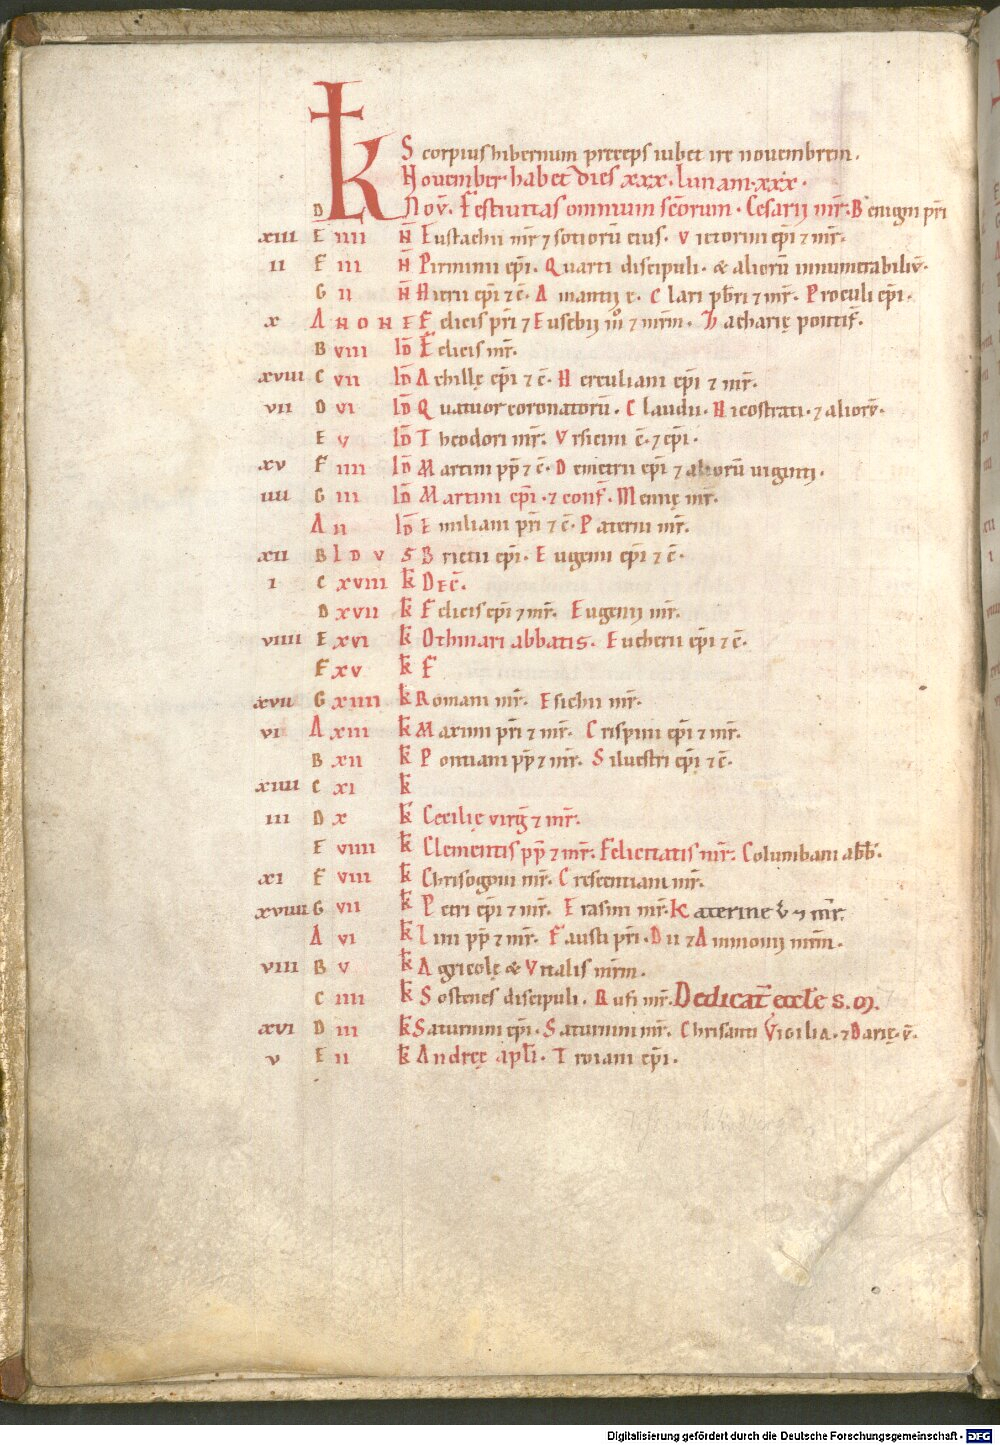 Scorpius hibernum preceps iubet ire nouembrem.
Nouember habet dies xxx. lunam. xxx.
D K Nov̄. Festiuitas omnium sc̄orum. Cesarij mr̄. Benigni pr̄i
xiii E iiii N̄ Eustachii mr̄ ⁊ sotiorū eius. Victorini ep̄i ⁊ mr̄.
ii F iii N̄ Pirminii ep̄i. Quarti discipuli. & aliorū innumerabiliū.
G ii N̄ Hierii ep̄i ⁊ c̄. Amantij c̄. Clari pb̄ri ⁊ mr̄. Proculi ep̄i.
x A NON E Felicis pr̄i ⁊ Eusebij mō ⁊ mr̄m. Zacharię pontif̄.
B viii ID̄ Felicis mr̄.
xviii C vii ID̄ Achillę ep̄i ⁊ c̄. Herculiani ep̄i ⁊ mr̄.
vii D vi ID̄ Quatuor coronatorū. Claudii. Nicostrati. ⁊ aliorū.
E v ID̄ Theodori mr̄. Vrsicini c̄. ⁊ ep̄i.
xv F iiii ID̄ Martini pp̄ ⁊ c̄. Demetrii ep̄i ⁊ aliorū uiginti.
iiii G iii ID̄ Martini ep̄i. ⁊ conf̄. Mennę mr̄.
A ii ID̄ Emiliani pr̄i ⁊ c̄. Paterni mr̄.
xii B IDVS Brictii ep̄i. Eugenii ep̄i ⁊ c̄.
i C xviii k̄ DEC̄.
D xvii k̄ Felicis ep̄i ⁊ mr̄. Eugenij mr̄.
viiii E xvi k̄ Othmari abbatis. Eucherii ep̄i ⁊ c̄.
F xv k̄ F
xvii G xiiii k̄ Romani mr̄. Esichii mr̄.
vi A xiii k̄ Maximi pr̄i ⁊ mr̄. Crispini ep̄i ⁊ mr̄.
B xii k̄ Pontiani pp̄ ⁊ mr̄. Siluestri ep̄i ⁊ c̄.
xiiii C xi k̄
iii D x k̄ Cecilię virḡ ⁊ mr̄.
E viiii k̄ Clementis pp̄ ⁊ mr̄. Felicitatis mr̄. Columbani abb̄.
xi F viii k̄ Chrisogoni mr̄. Crescentiani mr̄.
xviiii G vii k̄ Petri ep̄i ⁊ mr̄. Erasmi mr̄. Katerine v̄ ⁊ mr̄.
A vi k̄ Lini pp̄ ⁊ mr̄. Fausti pr̄i. Dii ⁊ Ammonij mr̄m.
viii B v k̄ Agricolę & Vitalis mr̄m.
C iiii k̄ Sostenes discipuli. Rufi mr̄. Dedicat̄ eccl̄e s. m.
xvi D iii k̄ Saturnini ep̄i. Saturnini mr̄. Chrisanti Vigilia. ⁊ Darię. v̄.
v E ii k̄ Andreę apl̄i. Troiani ep̄i.
Digitalisierung gefördert durch die Deutsche Forschungsgemeinschaft - DFG